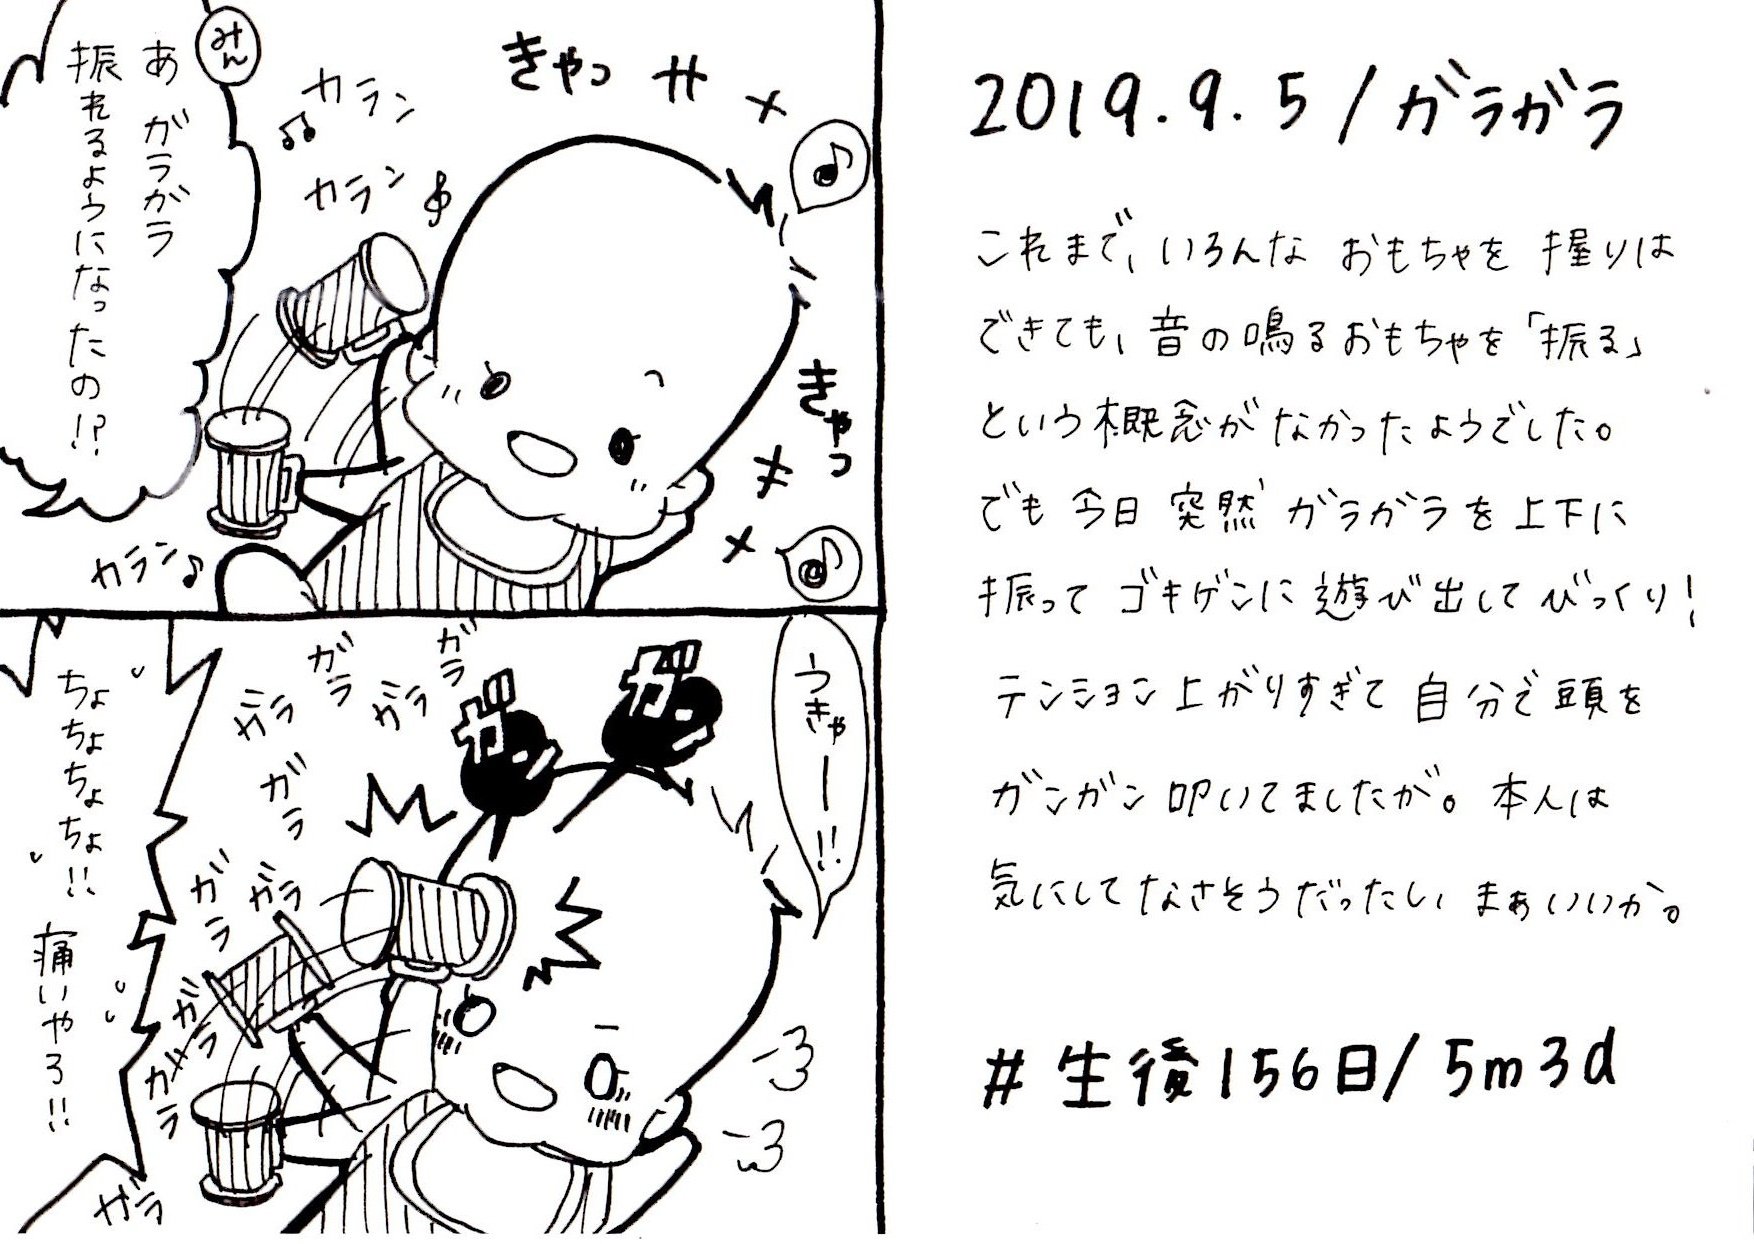 みん
あ ガラガラ
振れるようになったの!?
カラン
カラン
カラン
きゃっ キャ
きゃっ
キャ
うきゃー!!
ちょちょちょちょ!! 痛いやろ!!
ガラ
ガラ
ガラ
ガラ
ガラ
ガラ
ガラ
ガラ
ガラ
ガラ
ガン
ガン
2019.9.5/ガラガラ
これまで、いろんな おもちゃを 握りは
できても、音の鳴るおもちゃを「振る」
という概念がなかったようでした。
でも 今日 突然 ガラガラを上下に
振って ゴキゲンに遊び出してびっくり!
テンション上がりすぎて 自分で頭を
ガンガン叩いてましたが。本人は
気にしてなさそうだったし、まぁいいか。
#生後156日/5m3d